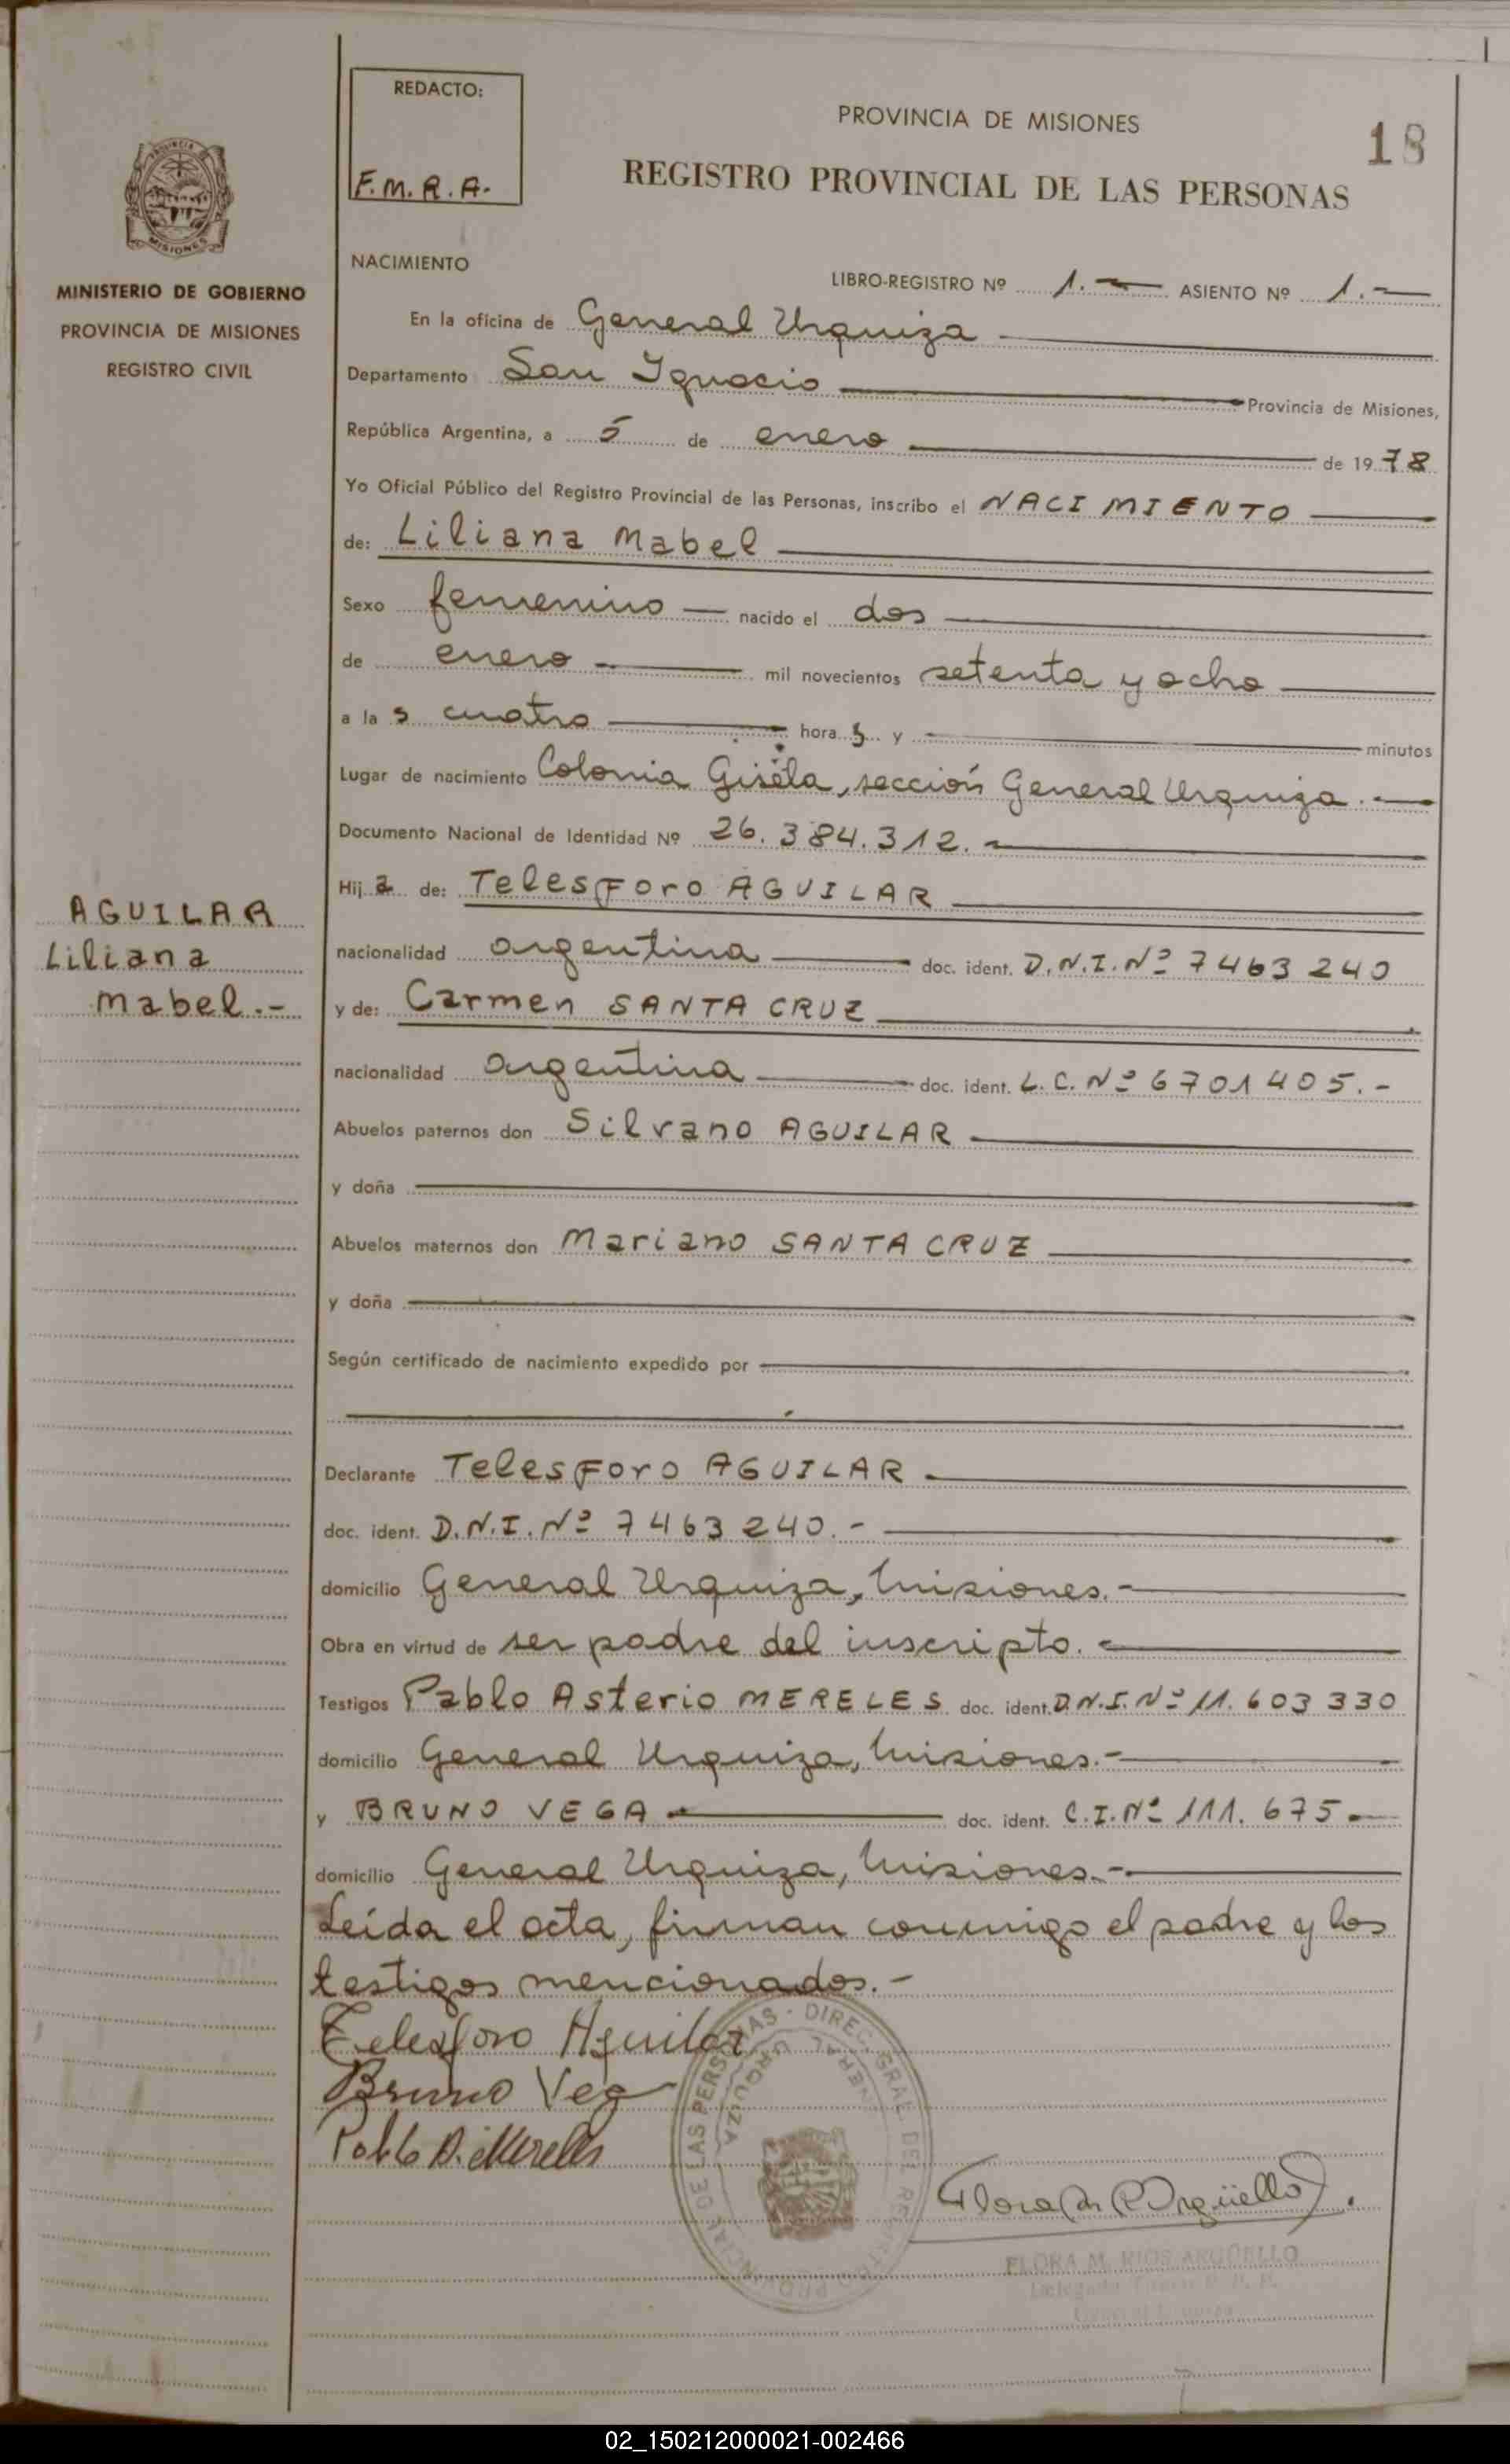 REDACTO:
F.M.R.A.
PROVINCIA DE MISIONES
18
REGISTRO PROVINCIAL DE LAS PERSONAS
MISIONES
MINISTERIO DE GOBIERNO
PROVINCIA DE MISIONES
REGISTRO CIVIL
NACIMIENTO
LIBRO-REGISTRO Nº 1.- ASIENTO Nº 1.-
En la oficina de General Urquiza
Departamento San Ignacio Provincia de Misiones,
República Argentina, a 5 de enero de 1978
Yo Oficial Público del Registro Provincial de las Personas, inscribo el NACIMIENTO
de: Liliana Mabel
Sexo femenino nacido el dos
de enero mil novecientos setenta y ocho
a las cuatro horas y minutos
Lugar de nacimiento Colonia Gisela, sección General Urquiza.-
Documento Nacional de Identidad Nº 26.384.312.-
Hija de: Telesforo AGUILAR
AGUILAR
Liliana
Mabel.-
nacionalidad argentina doc. ident. D.N.I.Nº 7463240
y de: Carmen SANTA CRUZ
nacionalidad argentina doc. ident. L.C.Nº 6701405.-
Abuelos paternos don Silvano AGUILAR
y doña
Abuelos maternos don Mariano SANTA CRUZ
y doña
Según certificado de nacimiento expedido por
Declarante Telesforo AGUILAR
doc. ident. D.N.I.Nº 7463240.-
domicilio General Urquiza, Misiones.-
Obra en virtud de ser padre del inscripto.
Testigos Pablo Asterio MERELES doc. ident. D.N.I.Nº 11.603330
domicilio General Urquiza, Misiones.-
y BRUNO VEGA doc. ident. C.I.Nº 111.675
domicilio General Urquiza, Misiones.-
Leída el acta, firman conmigo el padre y los
testigos mencionados.-
Telesforo Aguilar
Bruno Vega
Pablo A. Mereles
DIREC. GRAL. DEL REGISTRO PROVINCIAL DE LAS PERSONAS
GENERAL URQUIZA
Flora M R Argüello
FLORA M. RIOS ARGÜELLO
02_150212000021-002466